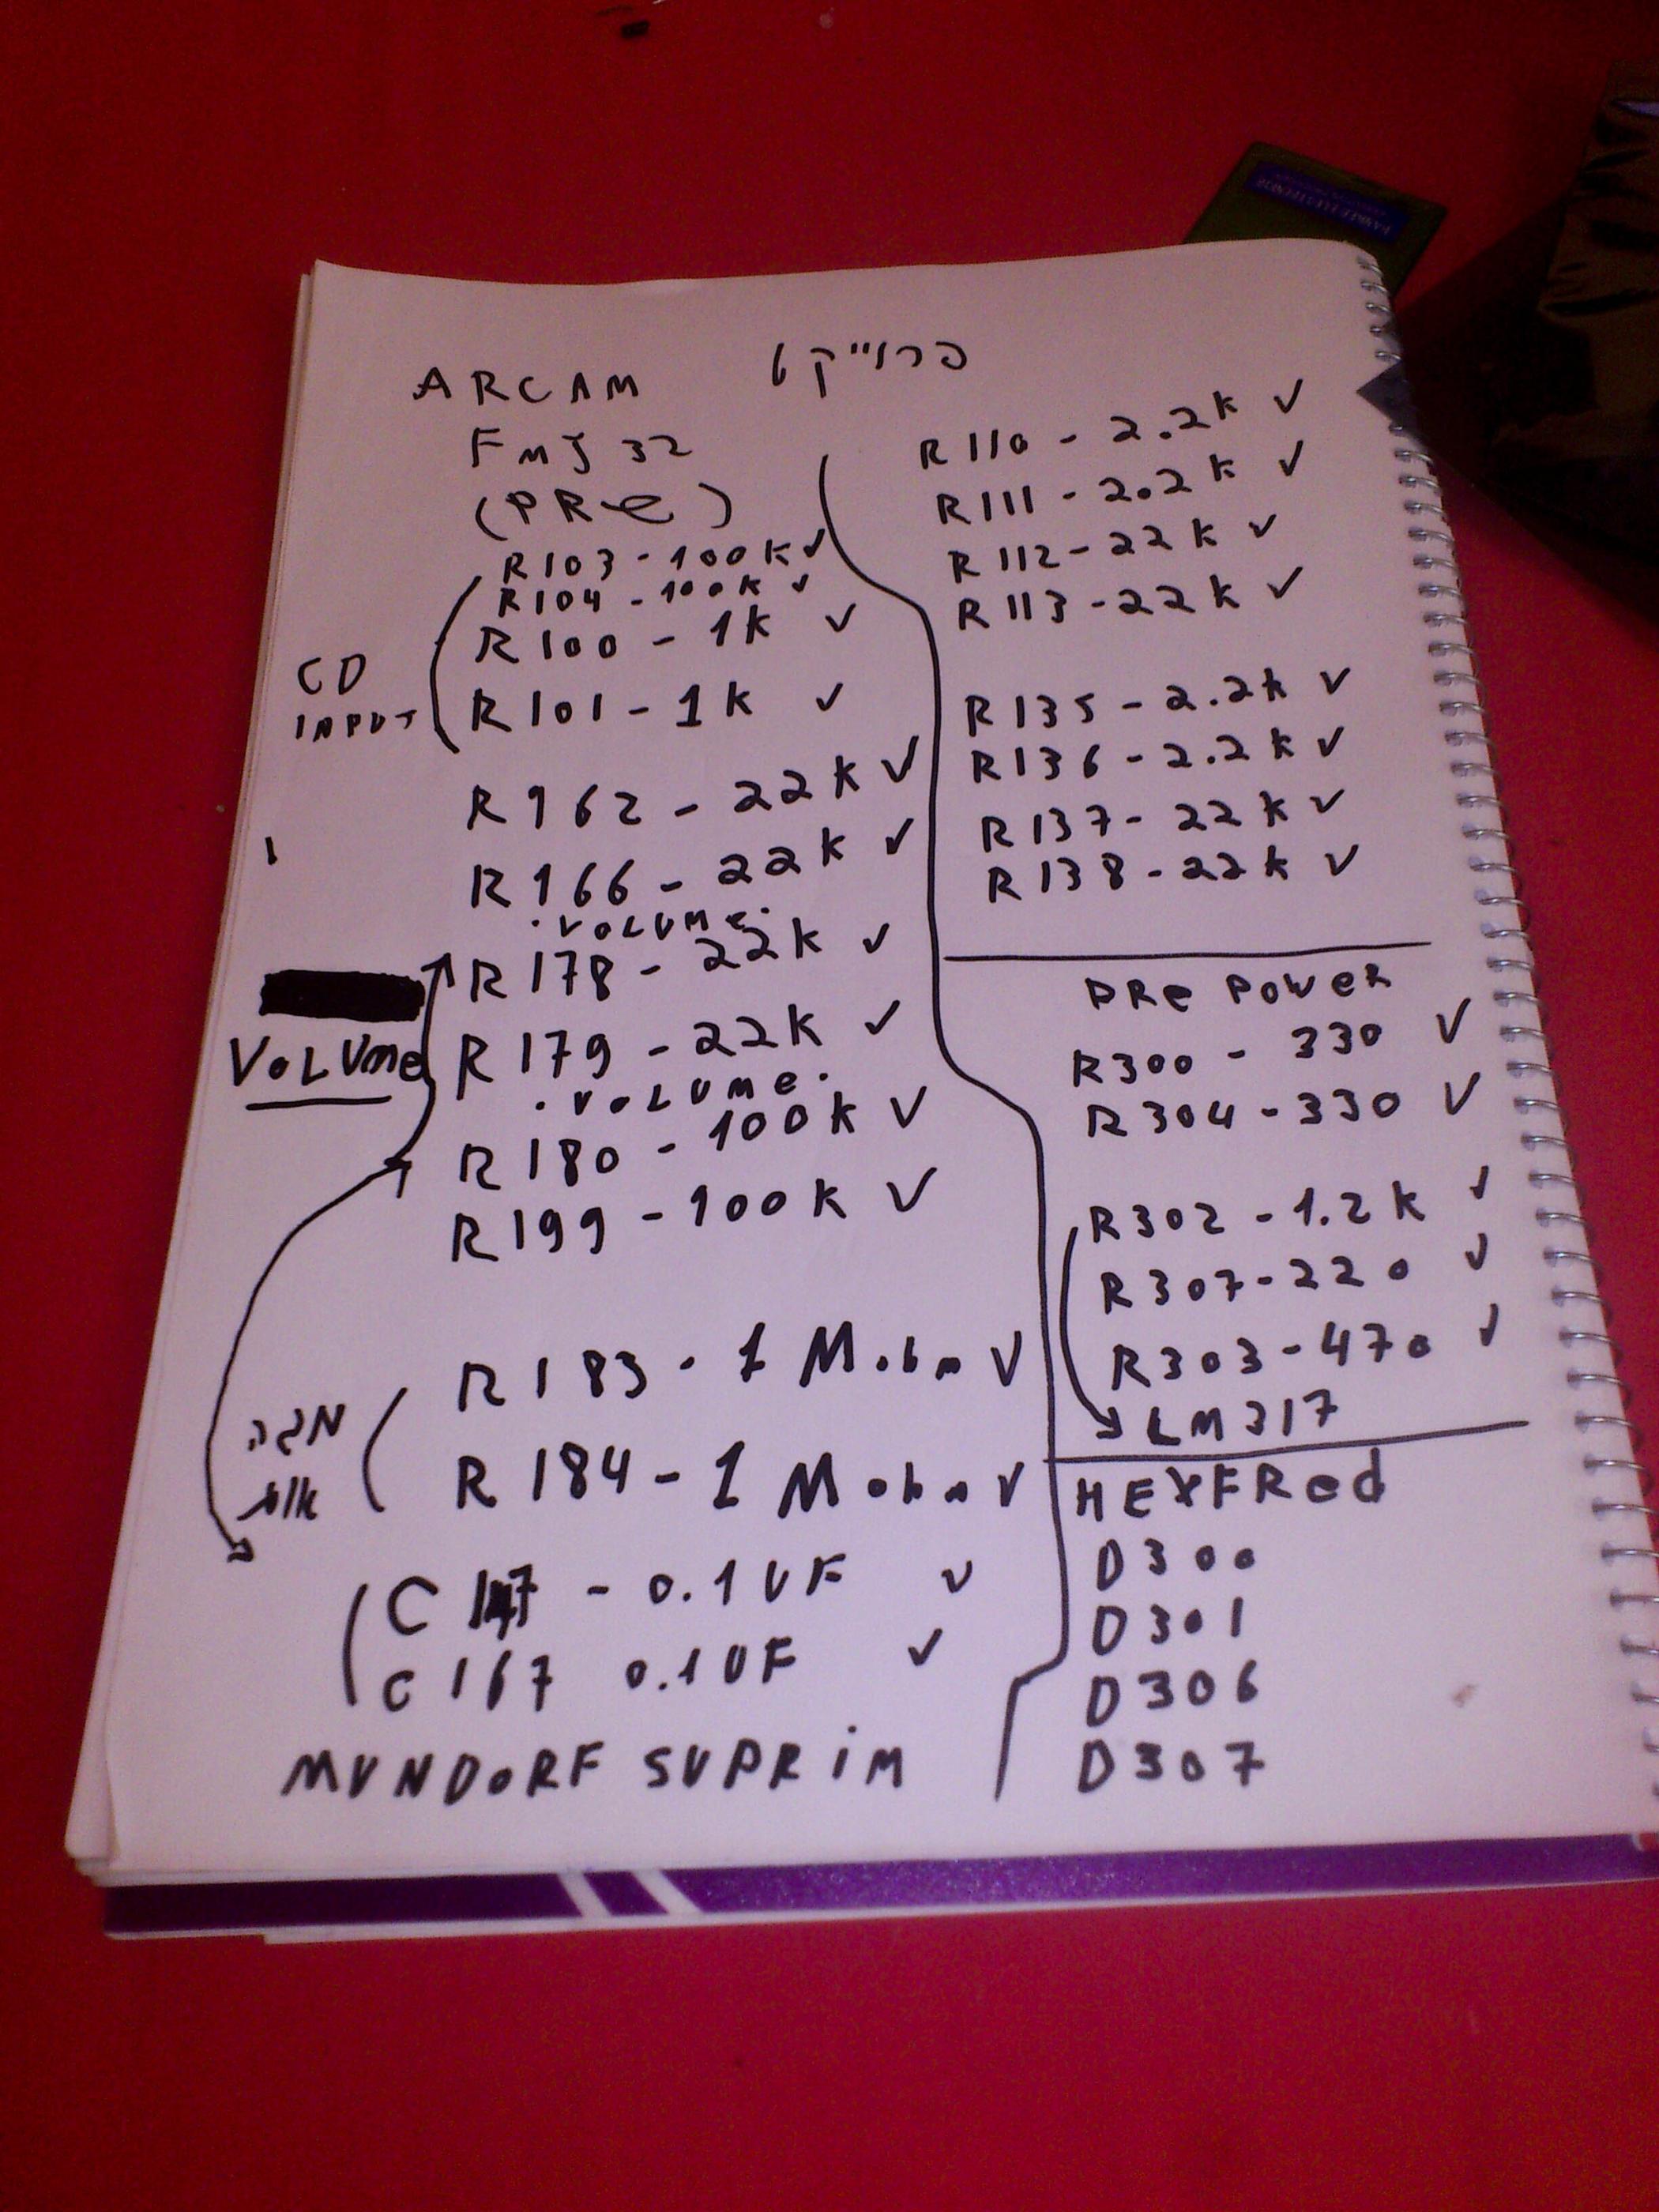 ARCAM פרוייקט
FMJ 32
(PRe)
R103 - 100K ✓
R104 - 100K ✓
R100 - 1K ✓
CD
INPUT
R101 - 1K ✓
R162 - 22K ✓
R166 - 22K ✓
. VOLUMe.
R178 - 22K ✓
VOLUme
R179 - 22K ✓
. VOLUMe.
R180 - 100K ✓
R199 - 100K ✓
R183 - 1 M.ohm V
מגה
אוהם
R184 - 1 Mohm V
C147 - 0.1UF ✓
C167 0.1UF ✓
MUNDORF SUPRiM
R110 - 2.2K ✓
R111 - 2.2K ✓
R112 - 22K ✓
R113 - 22K ✓
R135 - 2.2K ✓
R136 - 2.2K ✓
R137 - 22K ✓
R138 - 22K ✓
PRe POWeR
R300 - 330 ✓
R304 - 330 ✓
R302 - 1.2K ✓
R307 - 220 ✓
R303 - 470 ✓
LM317
HEXFRed
D300
D301
D306
D307